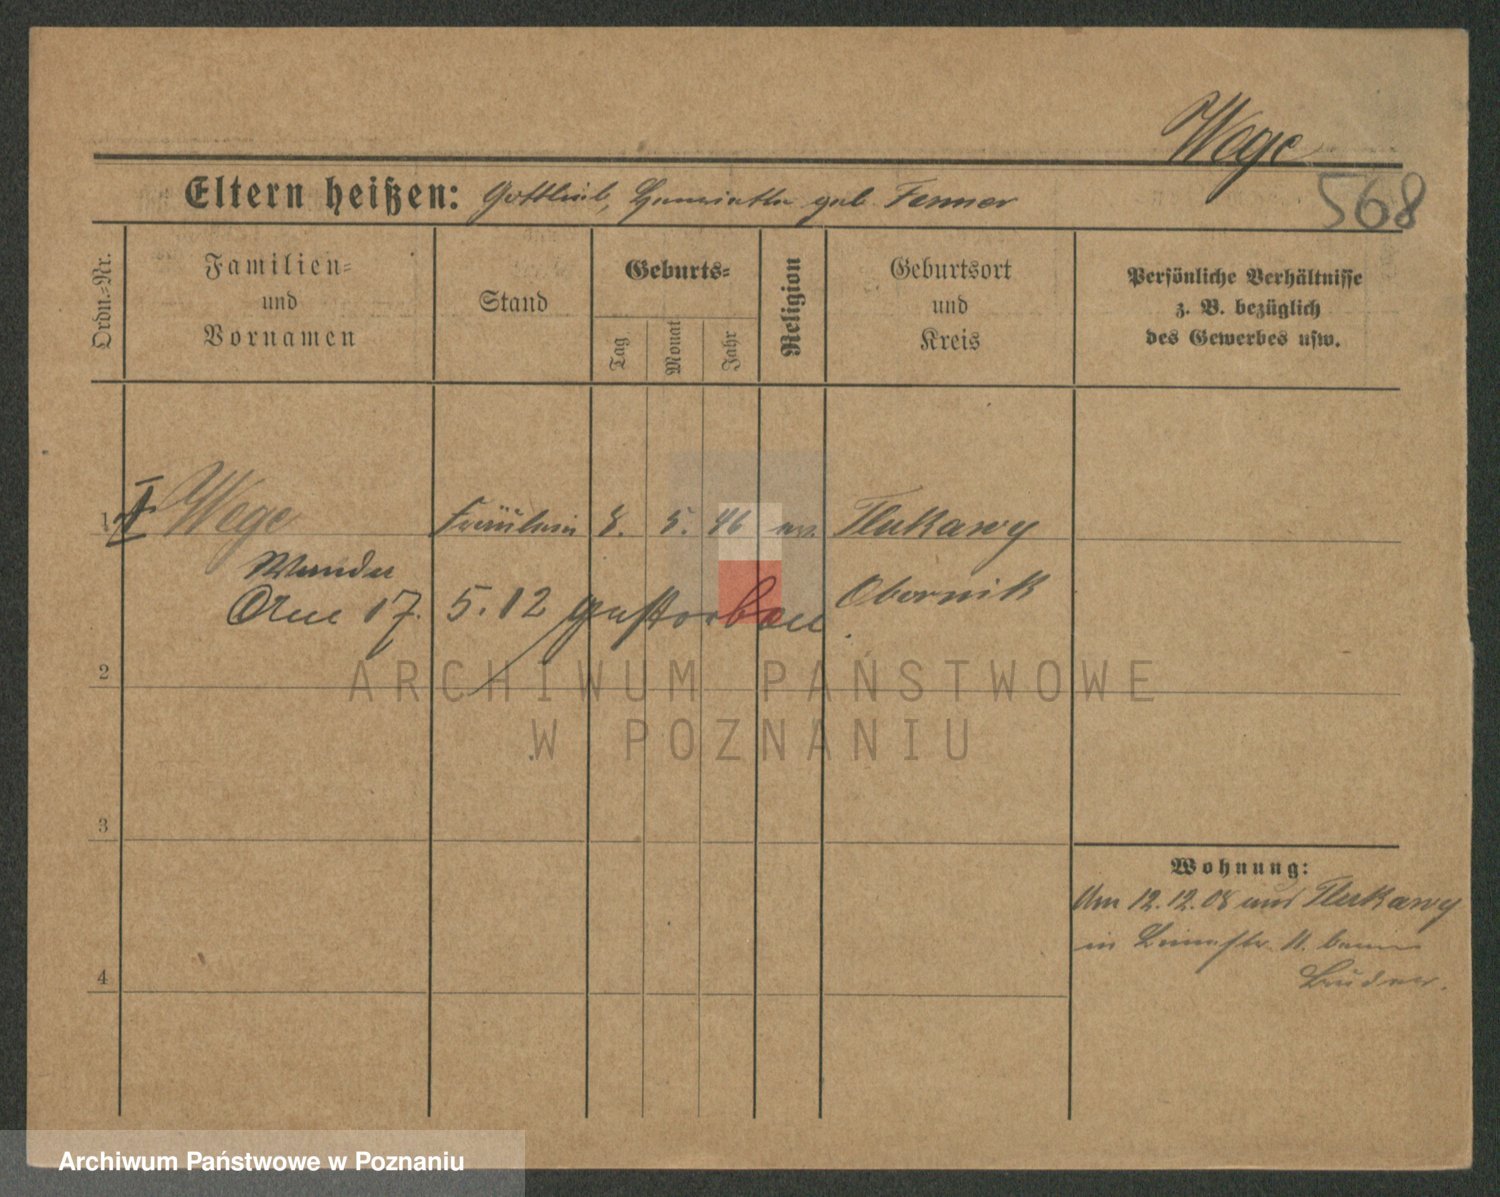 Wege
568
Eltern heißen: Gottlieb, Henriette geb. Fenner
Ordn.-Nr.
Familien-
und
Vornamen
Stand
Geburts-
Tag
Monat
Jahr
Religion
Geburtsort
und
Kreis
Persönliche Verhältnisse
z. B. bezüglich
des Gewerbes usw.
1 I Wege Fräulein 8. 5. 46 ev. Tlukawy
Wanda
Am 17. 5. 12 gestorben. Obornik
2
3
4
Wohnung:
Am 12.12.08 aus Tlukawy
in 11. beim
Bruder.
ARCHIWUM PAŃSTWOWE
W POZNANIU
Archiwum Państwowe w Poznaniu